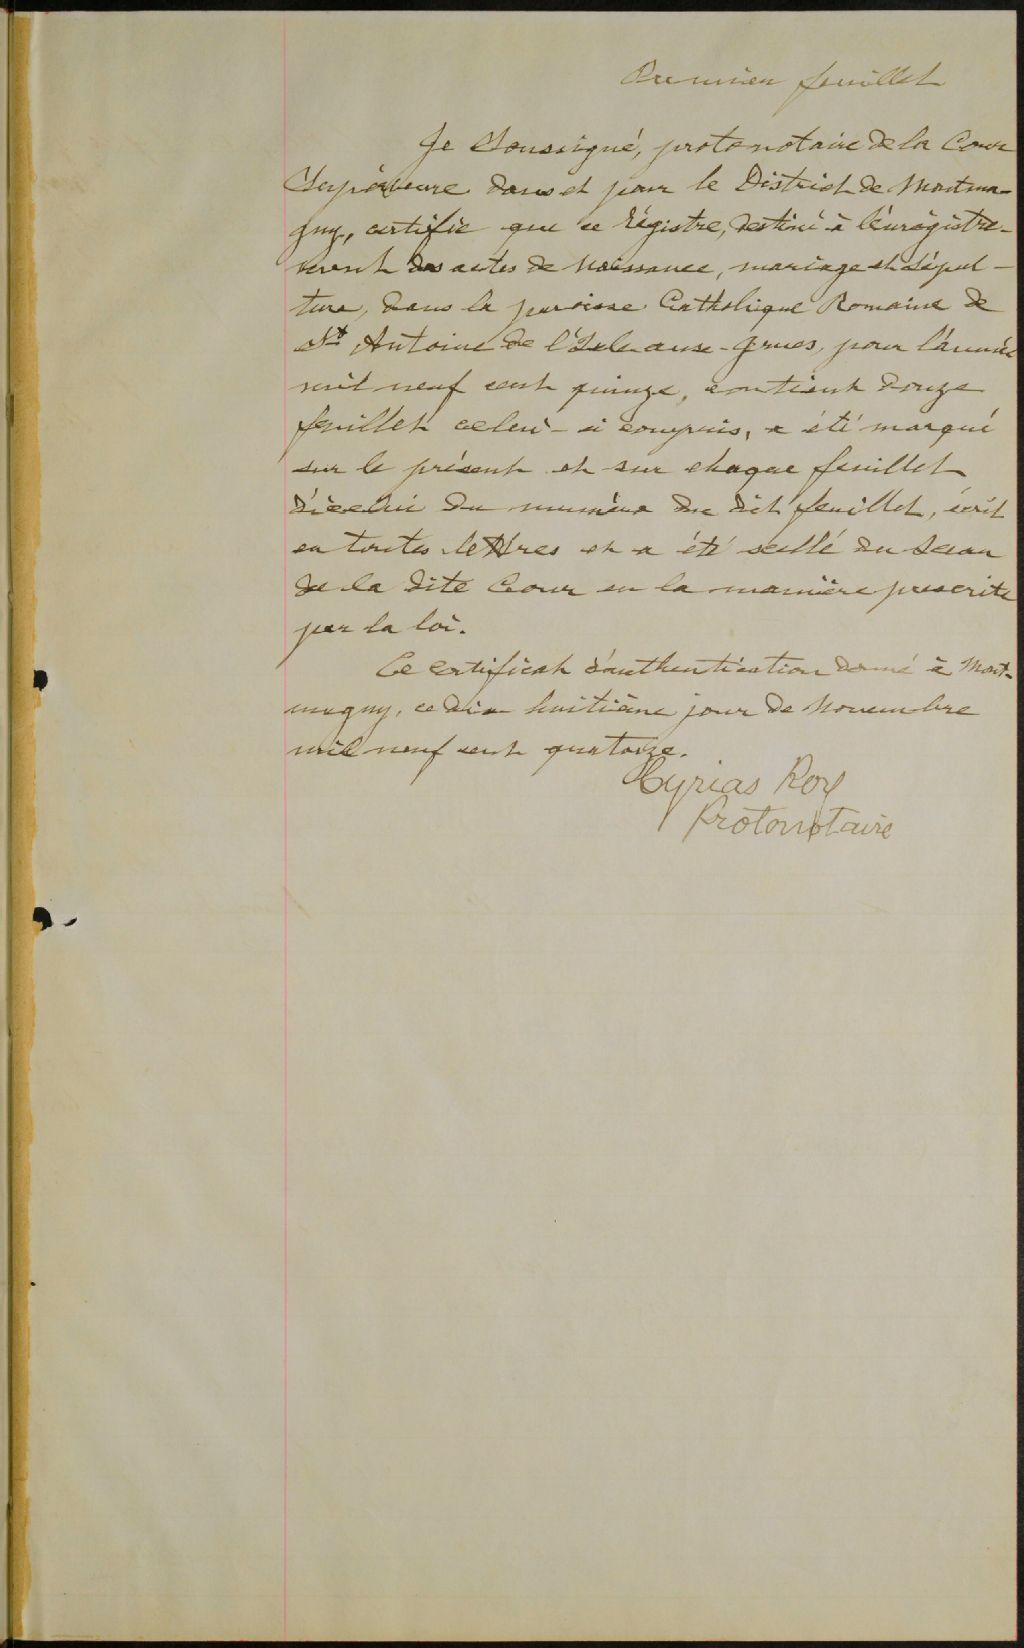 Premier feuillet
Je Soussigné, protonotaire de la Cour
Supérieure dans et pour le District de Montma-
gny, certifie que ce régistre, destiné à l'enrégistre-
ment des actes de Naissance, mariage et sépul-
ture, dans la paroisse Catholique Romaine de
St Antoine de l'Isle aux-Grues, pour l'année
mil neuf cent quinze, contient douze
feuillet celui-ci compris, a été marqué
sur le présent et sur chaque feuillet
d'icelui du numéro du dit feuillet, écrit
en toutes lettres et a été scellé du sceau
de la dite Cour en la manière prescrite
par la loi.
Ce certificat d'authentication donné à Mont-
magny, ce dix huitième jour de Novembre
mil neuf cent quatorze.
Cyrias Roy
Protonotaire